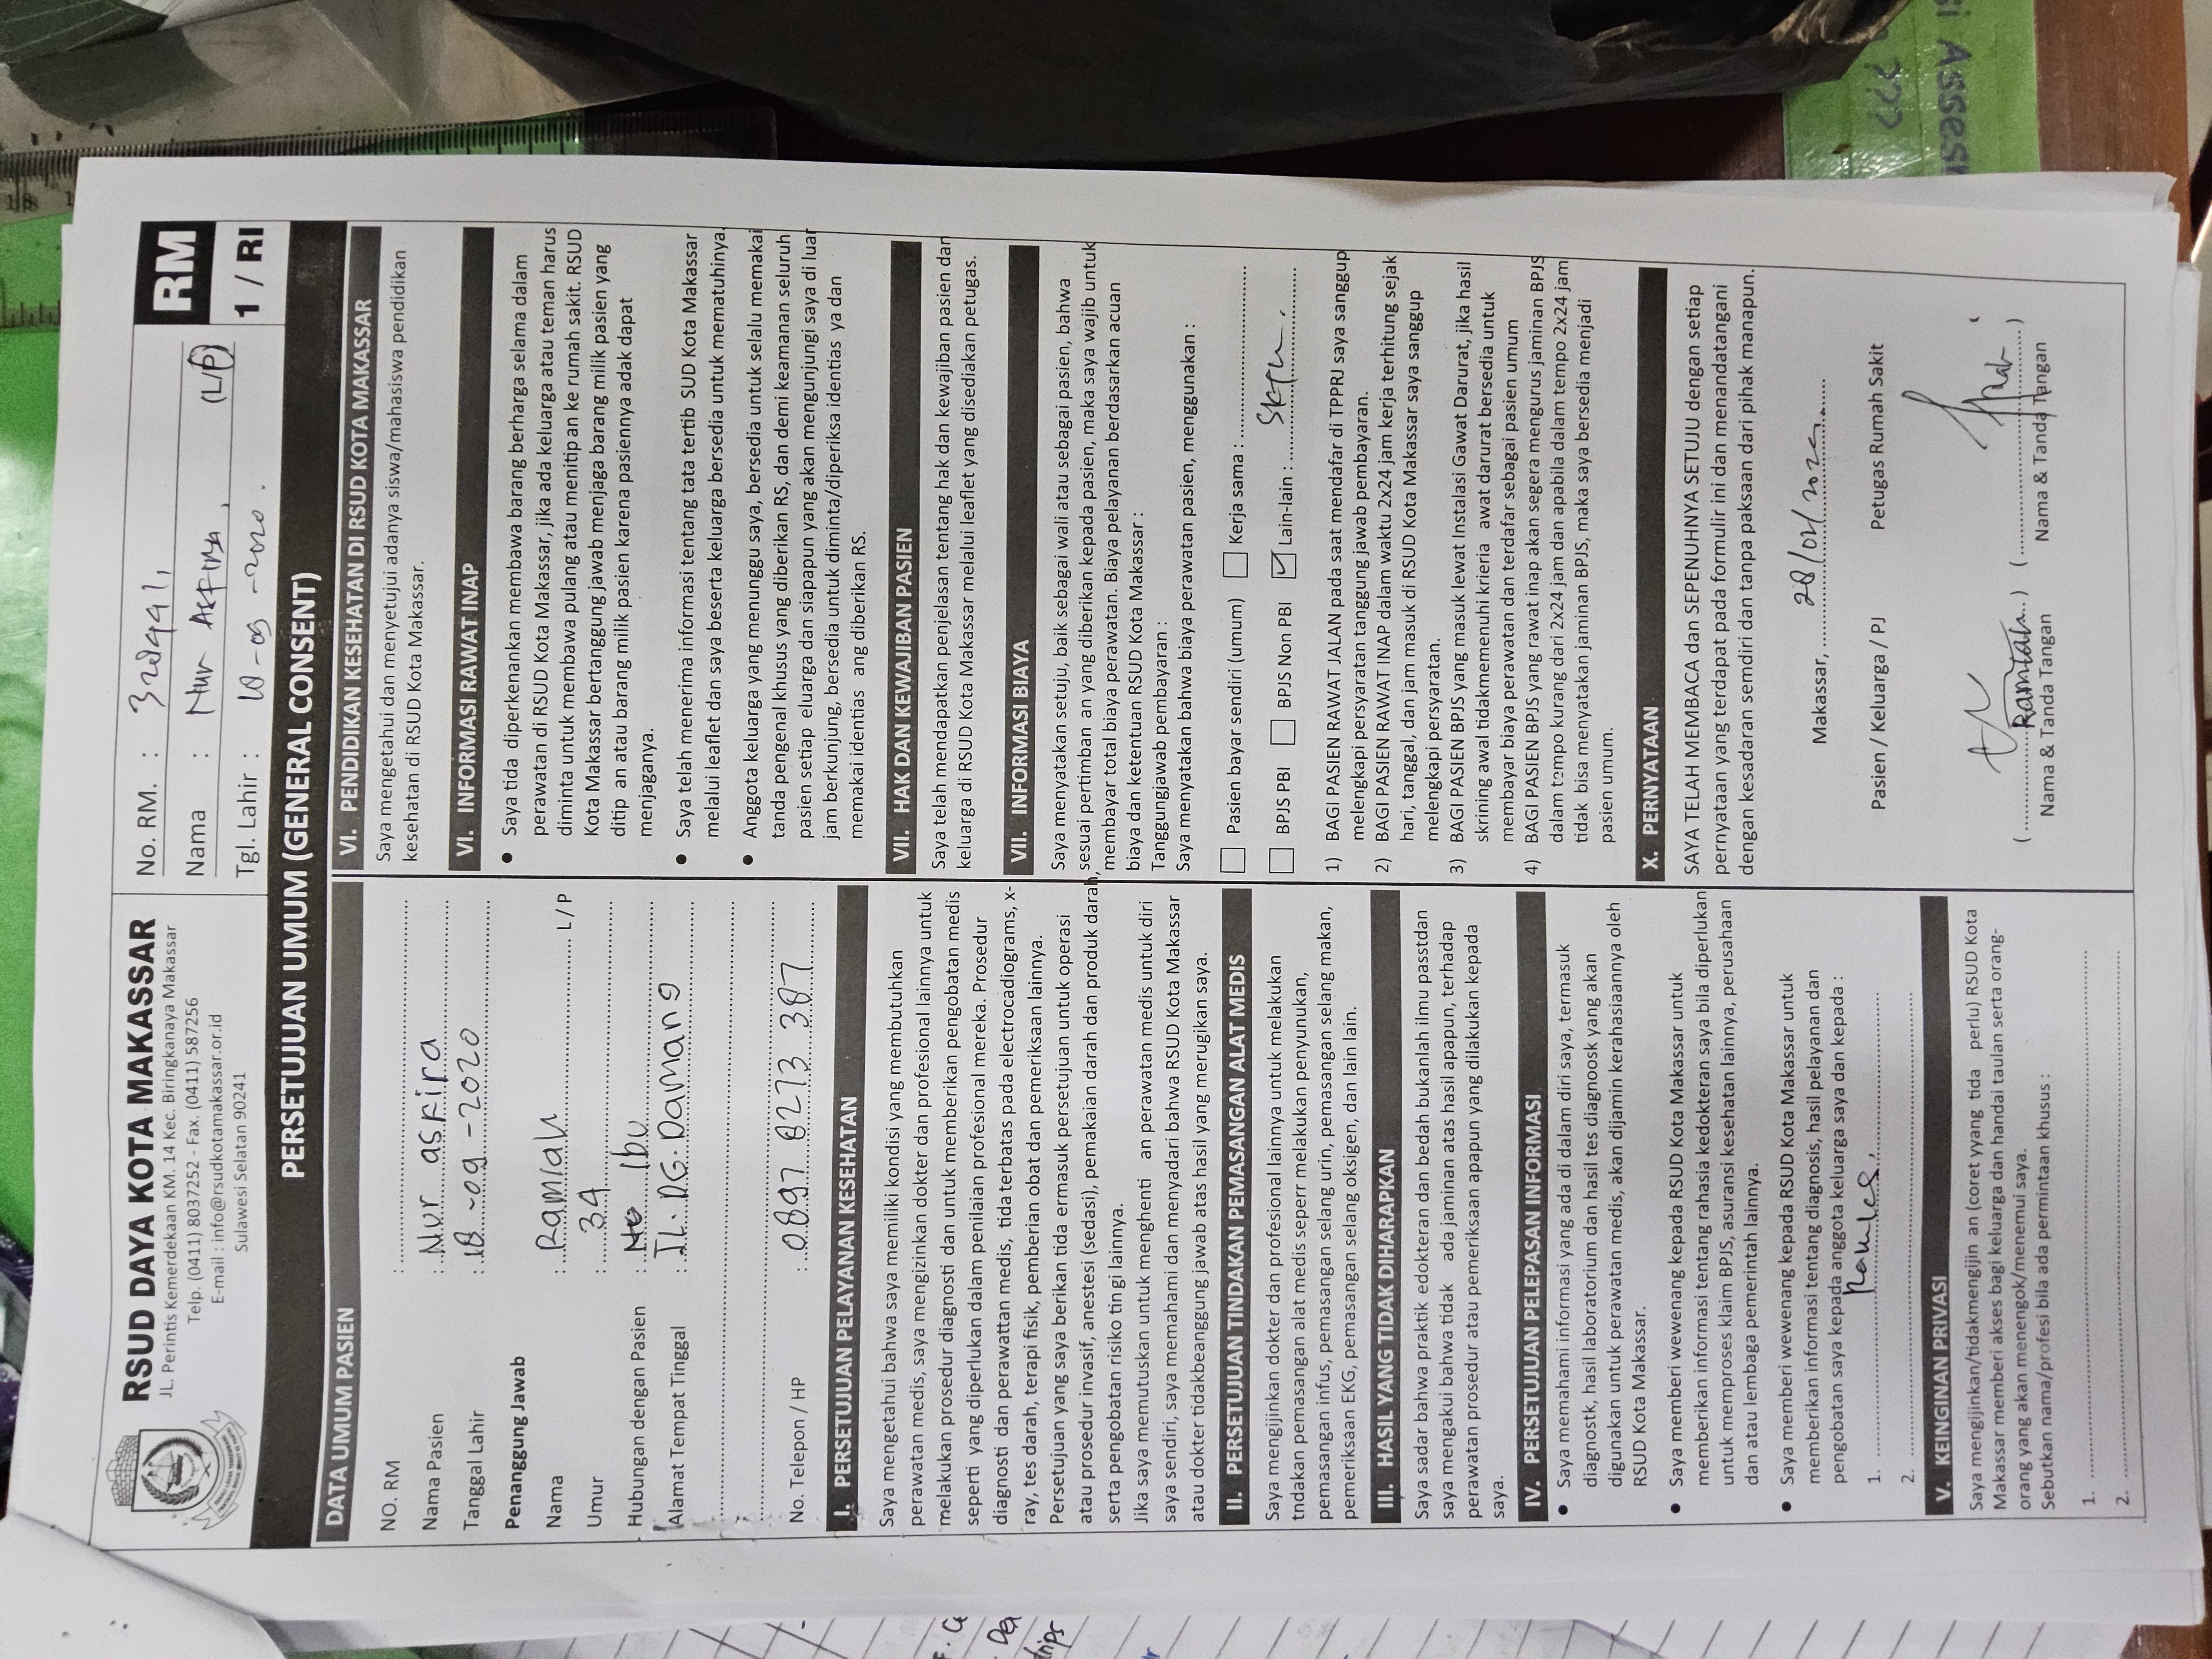 RSUD DAYA KOTA MAKASSAR
JL. Perintis Kemerdekaan KM. 14 Kec. Biringkanaya Makassar
Telp. (0411) 8037252 - Fax. (0411) 587256
E-mail : info@rsudkotamakassar.or.id
Sulawesi Selatan 90241
No. RM. :
Nama : Nur Askira
(L/P)
Tgl. Lahir : 18-09-2020.
RM
1 / RI
PERSETUJUAN UMUM (GENERAL CONSENT)
DATA UMUM PASIEN
NO. RM :
Nama Pasien : Nur asKira
Tanggal Lahir : 18-09-2020
Penanggung Jawab
Nama : Ramlah L / P
Umur : 34
Hubungan dengan Pasien : Ibu
Alamat Tempat Tinggal : JL. DG. Damang
No. Telepon / HP : 0897 8273 387
I. PERSETUJUAN PELAYANAN KESEHATAN
Saya mengetahui bahwa saya memiliki kondisi yang membutuhkan
perawatan medis, saya mengizinkan dokter dan profesional lainnya untuk
melakukan prosedur diagnosti dan untuk memberikan pengobatan medis
seperti yang diperlukan dalam penilaian profesional mereka. Prosedur
diagnosti dan perawattan medis, tida terbatas pada electrocadiograms, x-
ray, tes darah, terapi fisik, pemberian obat dan pemeriksaan lainnya.
Persetujuan yang saya berikan tida ermasuk persetujuan untuk operasi
atau prosedur invasif, anestesi (sedasi), pemakaian darah dan produk darah,
serta pengobatan risiko tingi lainnya.
Jika saya memutuskan untuk menghenti an perawatan medis untuk diri
saya sendiri, saya memahami dan menyadari bahwa RSUD Kota Makassar
atau dokter tidakbeanggung jawab atas hasil yang merugikan saya.
II. PERSETUJUAN TINDAKAN PEMASANGAN ALAT MEDIS
Saya mengijinkan dokter dan profesional lainnya untuk melakukan
tndakan pemasangan alat medis seperr melakukan penyunukan,
pemasangan infus, pemasangan selang urin, pemasangan selang makan,
pemeriksaan EKG, pemasangan selang oksigen, dan lain lain.
III. HASIL YANG TIDAK DIHARAPKAN
Saya sadar bahwa praktik edokteran dan bedah bukanlah ilmu passtdan
saya mengakui bahwa tidak ada jaminan atas hasil apapun, terhadap
perawatan prosedur atau pemeriksaan apapun yang dilakukan kepada
saya.
IV. PERSETUJUAN PELEPASAN INFORMASI
• Saya memahami informasi yang ada di dalam diri saya, termasuk
diagnostk, hasil laboratorium dan hasil tes diagnoosk yang akan
digunakan untuk perawatan medis, akan dijamin kerahasiaannya oleh
RSUD Kota Makassar.
• Saya memberi wewenang kepada RSUD Kota Makassar untuk
memberikan informasi tentang rahasia kedokteran saya bila diperlukan
untuk memproses klaim BPJS, asuransi kesehatan lainnya, perusahaan
dan atau lembaga pemerintah lainnya.
• Saya memberi wewenang kepada RSUD Kota Makassar untuk
memberikan informasi tentang diagnosis, hasil pelayanan dan
pengobatan saya kepada anggota keluarga saya dan kepada :
1.
2.
V. KEINGINAN PRIVASI
Saya mengijinkan/tidakmengijin an (coret yang tida perlu) RSUD Kota
Makassar memberi akses bagi keluarga dan handai taulan serta orang-
orang yang akan menengok/menemui saya.
Sebutkan nama/profesi bila ada permintaan khusus :
1.
2.
VI. PENDIDIKAN KESEHATAN DI RSUD KOTA MAKASSAR
Saya mengetahui dan menyetujui adanya siswa/mahasiswa pendidikan
kesehatan di RSUD Kota Makassar.
VII. INFORMASI RAWAT INAP
• Saya tida diperkenankan membawa barang berharga selama dalam
perawatan di RSUD Kota Makassar, jika ada keluarga atau teman harus
diminta untuk membawa pulang atau menitip an ke rumah sakit. RSUD
Kota Makassar bertanggung jawab menjaga barang milik pasien yang
ditip an atau barang milik pasien karena pasiennya adak dapat
menjaganya.
• Saya telah menerima informasi tentang tata tertib SUD Kota Makassar
melalui leaflet dan saya beserta keluarga bersedia untuk mematuhinya.
• Anggota keluarga yang menunggu saya, bersedia untuk selalu memakai
tanda pengenal khusus yang diberikan RS, dan demi keamanan seluruh
pasien setiap eluarga dan siapapun yang akan mengunjungi saya di luar
jam berkunjung, bersedia untuk diminta/diperiksa identitas ya dan
memakai identias ang diberikan RS.
VII. HAK DAN KEWAJIBAN PASIEN
Saya telah mendapatkan penjelasan tentang hak dan kewajiban pasien dan
keluarga di RSUD Kota Makassar melalui leaflet yang disediakan petugas.
VII. INFORMASI BIAYA
Saya menyatakan setuju, baik sebagai wali atau sebagai pasien, bahwa
sesuai pertimban an yang diberikan kepada pasien, maka saya wajib untuk
membayar total biaya perawatan. Biaya pelayanan berdasarkan acuan
biaya dan ketentuan RSUD Kota Makassar :
Tanggungjawab pembayaran :
Saya menyatakan bahwa biaya perawatan pasien, menggunakan :
Pasien bayar sendiri (umum) Kerja sama :
BPJS PBI BPJS Non PBI Lain-lain :
1) BAGI PASIEN RAWAT JALAN pada saat mendafar di TPPRJ saya sanggup
melengkapi persyaratan tanggung jawab pembayaran.
2) BAGI PASIEN RAWAT INAP dalam waktu 2x24 jam kerja terhitung sejak
hari, tanggal, dan jam masuk di RSUD Kota Makassar saya sanggup
melengkapi persyaratan.
3) BAGI PASIEN BPJS yang masuk lewat Instalasi Gawat Darurat, jika hasil
skrining awal tidakmemenuhi krieria awat darurat bersedia untuk
membayar biaya perawatan dan terdafar sebagai pasien umum
4) BAGI PASIEN BPJS yang rawat inap akan segera mengurus jaminan BPJS
dalam tempo kurang dari 2x24 jam dan apabila dalam tempo 2x24 jam
tidak bisa menyatakan jaminan BPJS, maka saya bersedia menjadi
pasien umum.
X. PERNYATAAN
SAYA TELAH MEMBACA dan SEPENUHNYA SETUJU dengan setiap
pernyataan yang terdapat pada formulir ini dan menandatangani
dengan kesadaran semdiri dan tanpa paksaan dari pihak manapun.
Makassar,
Pasien / Keluarga / PJ Petugas Rumah Sakit
( Ramlah ) ( )
Nama & Tanda Tangan Nama & Tanda Tangan